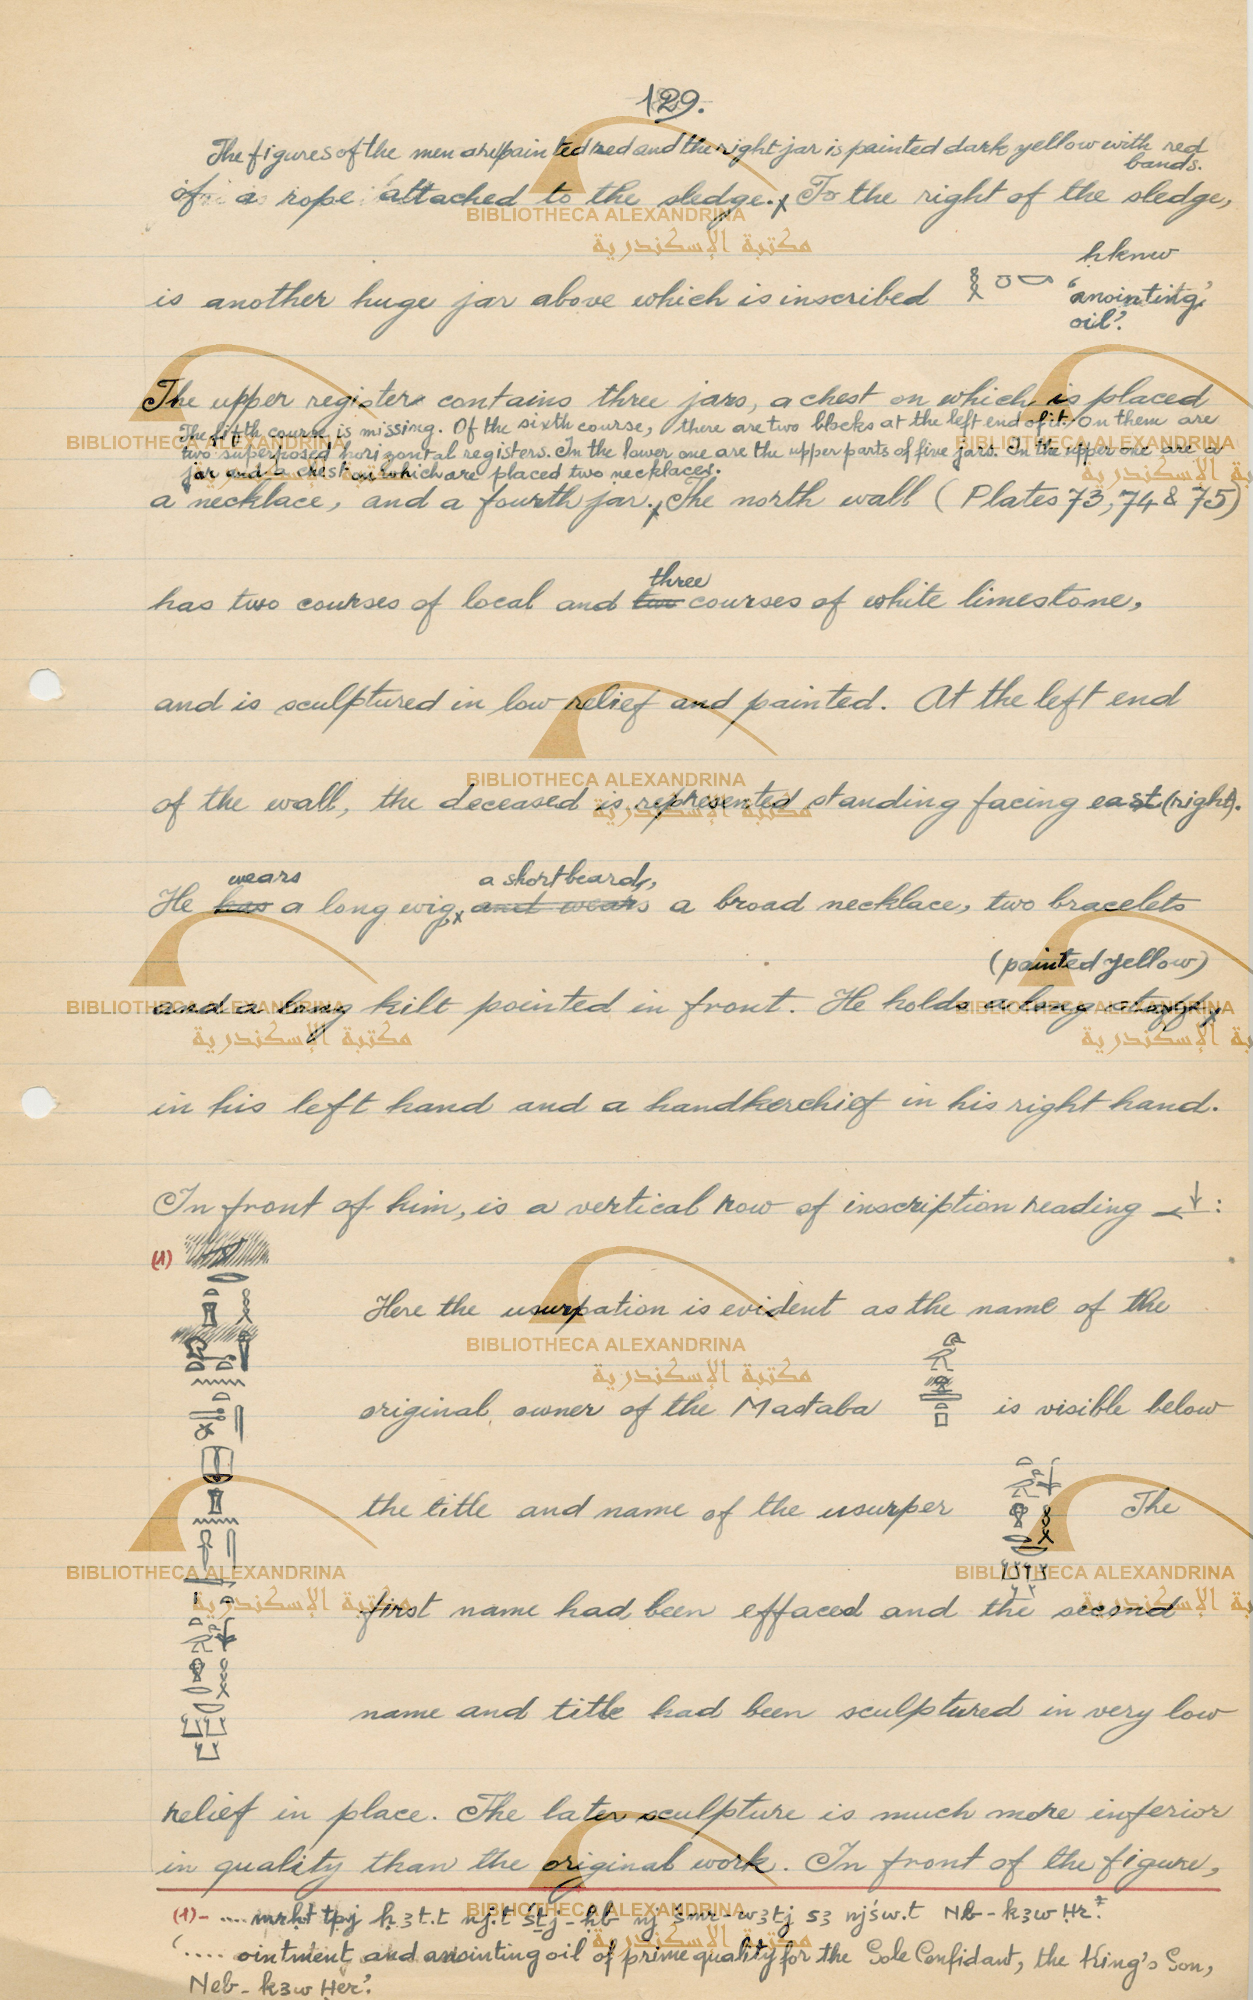 129.
The figures of the men are painted red and the right jar is painted dark yellow with red
bands.
of a rope attached to the sledge. x To the right of the sledge,
ḥknw
is another huge jar above which is inscribed 'anointing
oil'.
The upper register contains three jars, a chest on which is placed
The fifth course is missing. Of the sixth course, there are two blocks at the left end of it. On them are
two superposed horizontal registers. In the lower one are the upper parts of five jars. In the upper one are a
jar and a chest on which are placed two necklaces.
a necklace, and a fourth jar. x The north wall (Plates 73, 74 & 75)
three
has two courses of local and two courses of white limestone,
and is sculptured in low relief and painted. At the left end
of the wall, the deceased is represented standing facing east (right).
wears a short beard,
He has a long wig, x and wears a broad necklace, two bracelets
(painted yellow)
and a long kilt pointed in front. He holds a long staff x
in his left hand and a handkerchief in his right hand.
In front of him, is a vertical row of inscription reading :
(1)
Here the usurpation is evident as the name of the
original owner of the Mastaba is visible below
the title and name of the usurper The
first name had been effaced and the second
name and title had been sculptured in very low
relief in place. The later sculpture is much more inferior
in quality than the original work. In front of the figure,
(1)- .... mrḥt tpj ḥ3t.t nj.t śṯj-ḥb nj śmr-w3tj s3 njśw.t Nb-k3w Ḥr.
'..... ointment and anointing oil of prime quality for the Sole Confidant, the King's Son,
Neb-k3w Ḥer'.
BIBLIOTHECA ALEXANDRINA
مكتبة الإسكندرية